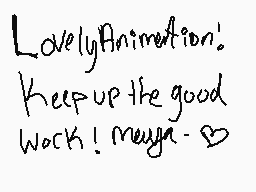 Lovely Animation!
Keep up the good
work! Meuga - ♡